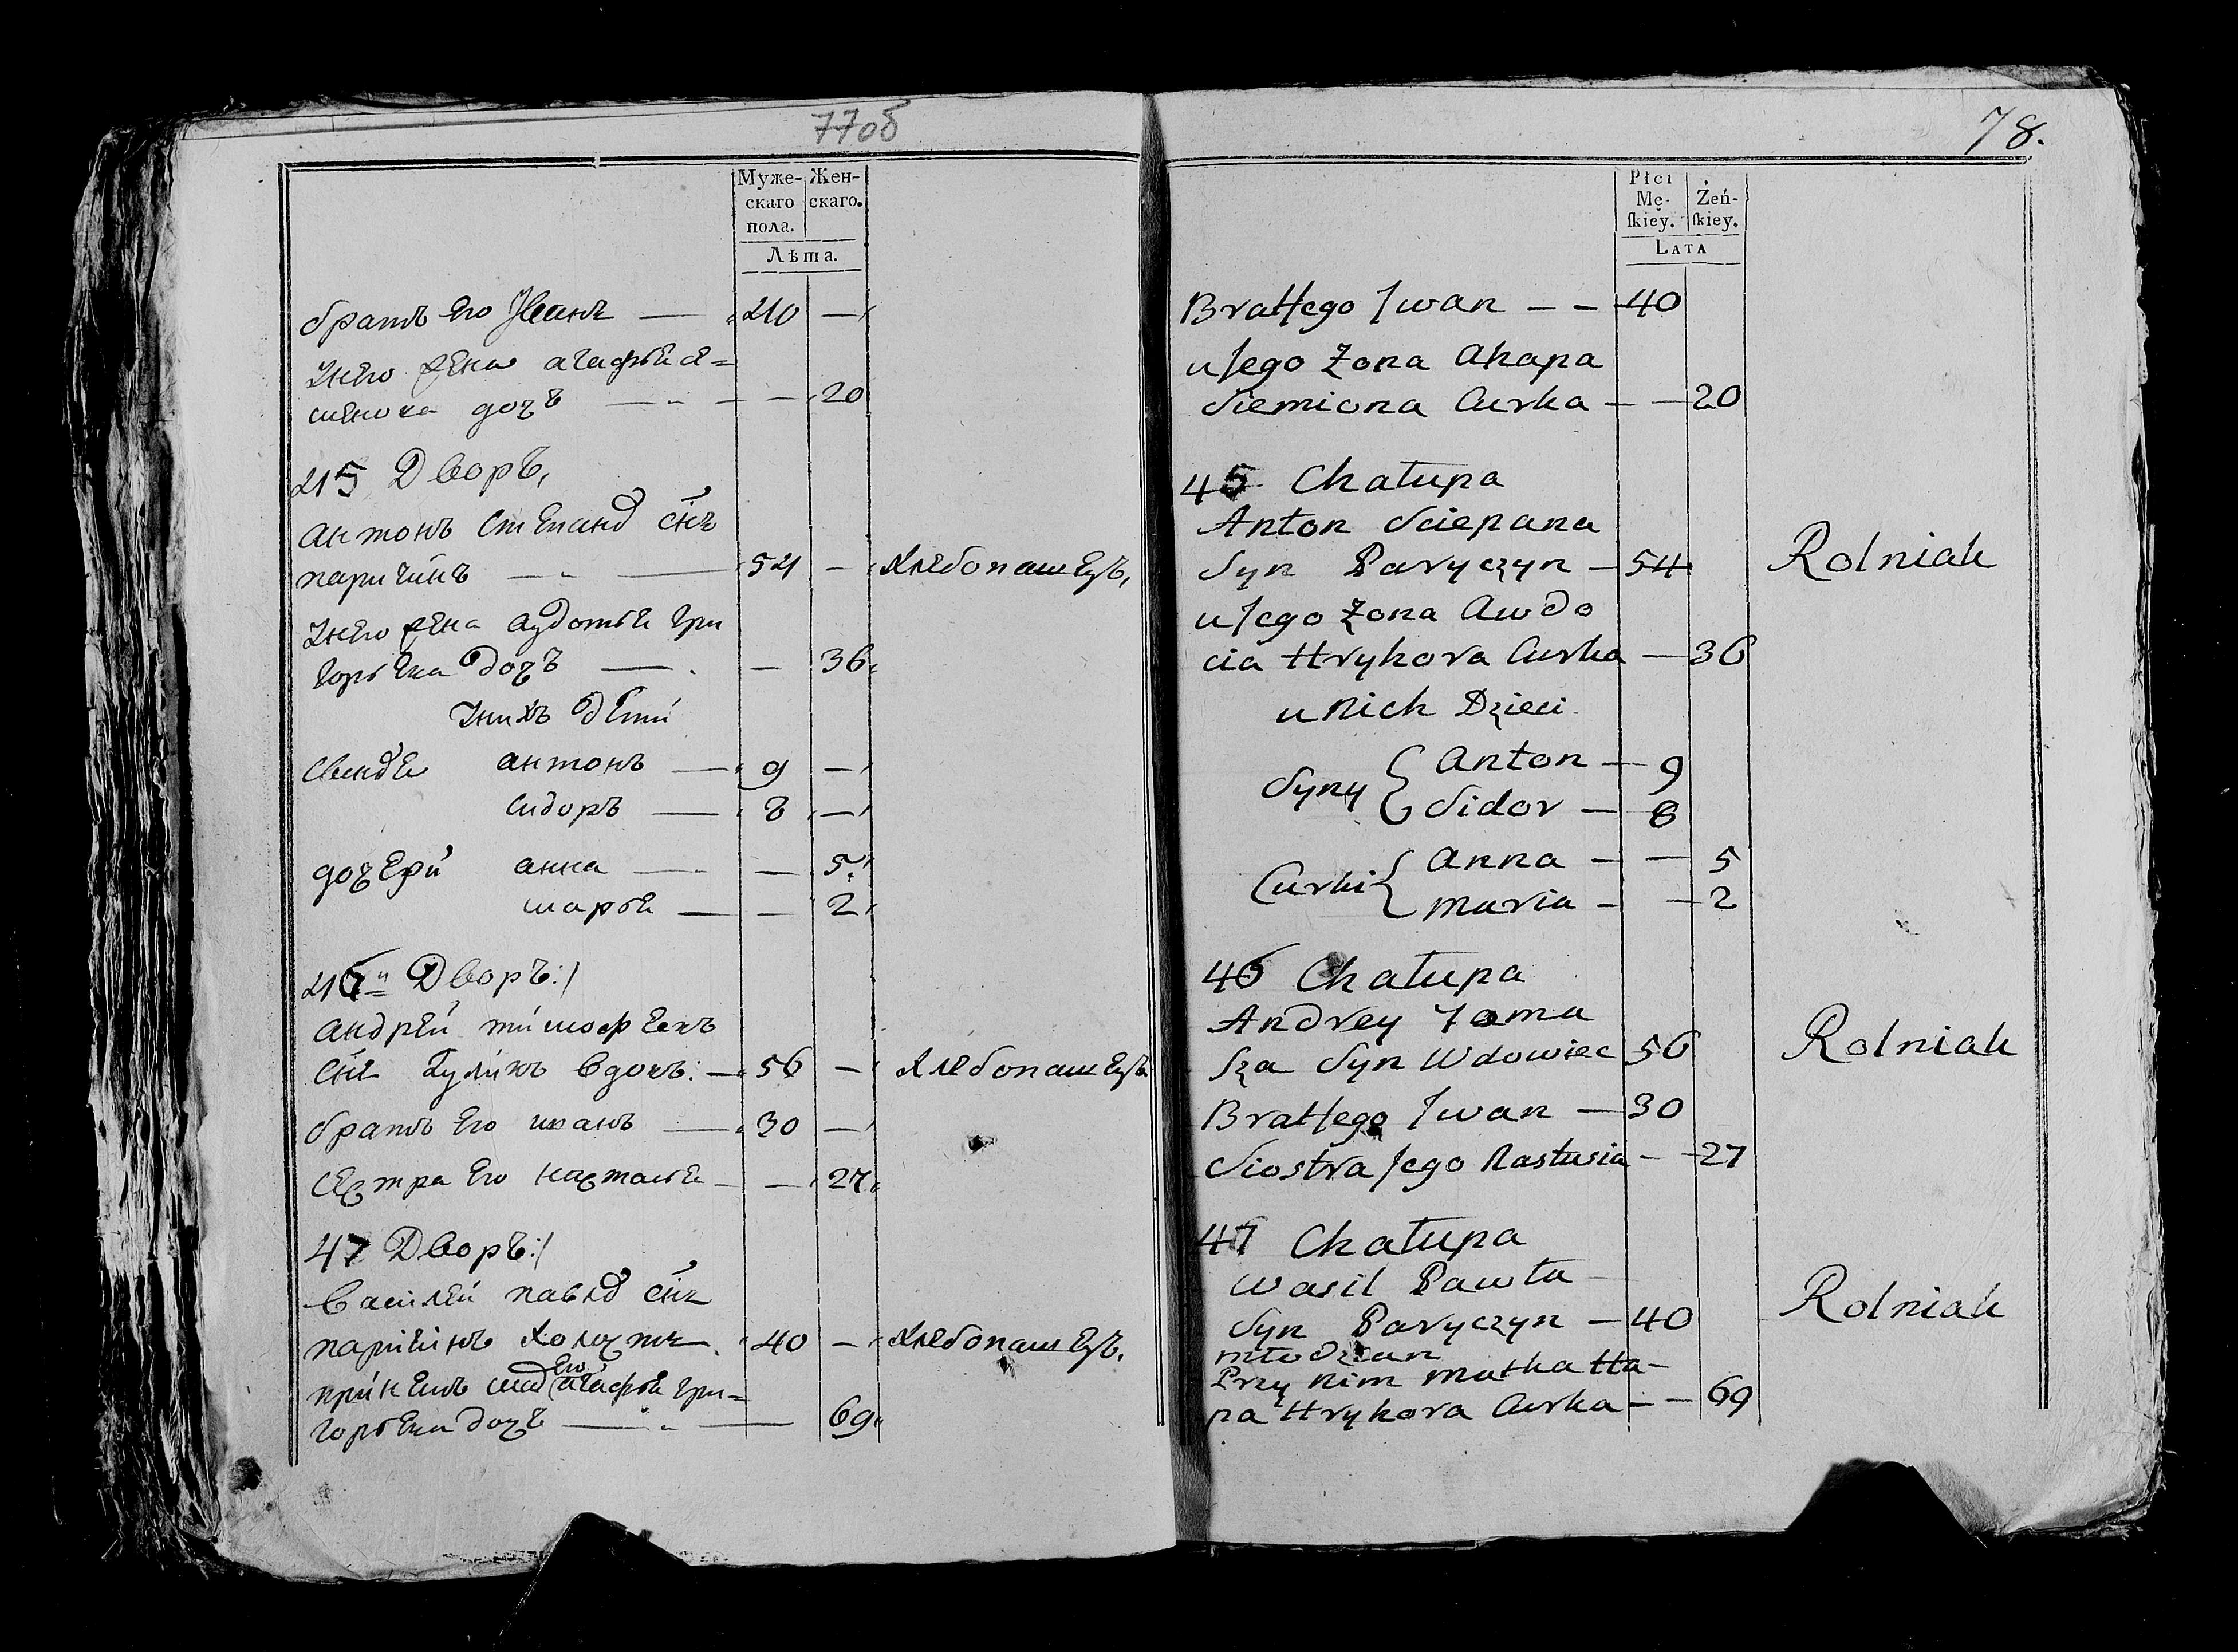 77об
Муже- Жен-
скаго скаго.
пола.
Лѣта.
братъ его Іванъ — 40 —
унего жена агафья се=
менова дочъ — — 20
45 Дворъ,
антонъ степанов сн̃ъ
паричинъ — 54 — Хлѣбопашецъ,
унего жена аудотья гри
горьева дочъ — — 36
унихъ дети
сыновья антонъ — 9 —
сидоръ — 8 —
дочери анна — — 5
марья — — 2
46й Дворъ:/
андрей тимофеевъ
сн̃ъ Куликъ вдовъ: — 56 — Хлѣбопашецъ
братъ его иванъ — 30 —
сестра его настасья — — 27
47 Дворъ:/
василей павлов сн̃ъ
паричинъ холостъ 40 — Хлѣбопашецъ,
принемъ мат его агафья гри=
горьева дочъ — — 69
78.
Płci
Mę- Żeń-
ſkiey. ſkiey.
LATA
Brat Jego Iwan — — 40
u Jego Żona Ahapa
Siemiona Curka — — 20
45 Chałupa
Anton Sciepana
Syn Paryczyn — 54 Rolnik
u Jego Żona Awdo
cia Hryhora Curka — 36
u Nich Dzieci
Syny { Anton — 9
Sidor — 8
Curki { Anna — — 5
Maria — — 2
46 Chałupa
Andrey Toma
sza Syn Wdowiec 56 Rolnik
Brat Jego Iwan — 30
Siostra Jego Nastusia — — 27
47 Chałupa
Wasil Pawła
Syn Paryczyn — 40 Rolnik
młodzian
Przy Nim Matka Ha-
pa Hryhora Curka — — 69